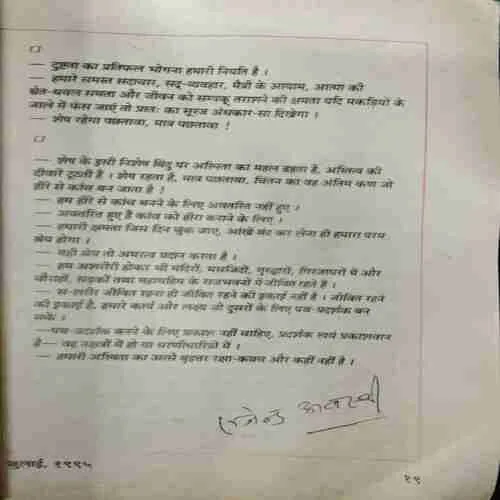 — दुष्टता का प्रतिफल भोगना हमारी नियति है ।
— हमारे समस्त सदाचार, सद्-व्यवहार, मैत्री के आयाम, आत्मा की
श्वेत-धवल समता और जीवन को सम्यक् तराशने की क्षमता यदि मकड़ियों के
जाले में फंस जाएं तो प्रातः का सूरज अंधकार-सा दिखेगा ।
— शेष रहेगा पछतावा, मात्र पछतावा !
— शेष के इसी निशेष बिंदु पर अस्मिता का महल ढहता है, अस्तित्व की
दीवारें टूटती हैं । शेष रहता है, मात्र पछतावा, चिंतन का वह अंतिम कण जो
हीरे से कांच बन जाता है !
— हम हीरे से कांच बनने के लिए अवतरित नहीं हुए ।
— अवतरित हुए हैं कांच को हीरा बनाने के लिए ।
— हमारी क्षमता जिस दिन चुक जाए, आंखें बंद कर लेना ही हमारा परम
श्रेय होगा ।
— वही श्रेय तो अमरत्व प्रदान करता है ।
— हम अशरीरी होकर भी मंदिरों, मसजिदों, गुरुद्वारों, गिरजाघरों में और
चौराहों, सड़कों तथा महामहिम के राजभवनों में जीवित रहते हैं ।
— स-शरीर जीवित रहना ही जीवित रहने की इकाई नहीं है । जीवित रहने
की इकाई है, हमारे कार्य और लक्ष्य जो दूसरों के लिए पथ-प्रदर्शक बन
सकें ।
—पथ-प्रदर्शक बनने के लिए प्रकाश नहीं चाहिए, प्रदर्शक स्वयं प्रकाशवान
है— वह नक्षत्रों में हो या धरणीधारियों में ।
— हमारी अस्मिता का इससे सुदृढ़ रक्षा-कवच और कहीं नहीं है ।
राजेन्द्र अवस्थी
जुलाई, १९९५
१९